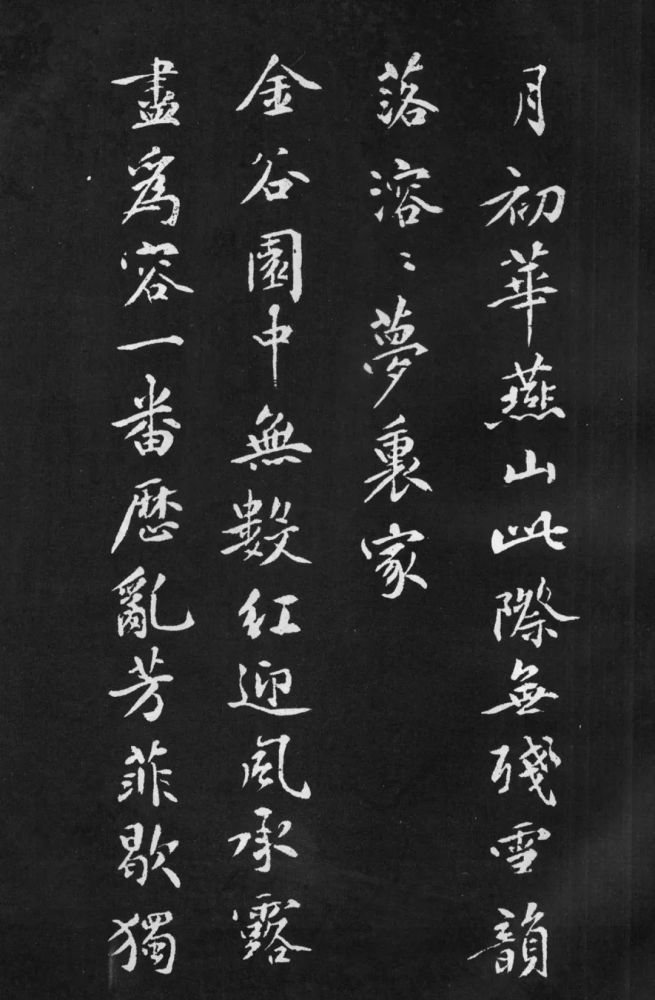 月初華燕山此際無殘雪韻
落溶〻夢裏家
金谷園中無數紅迎風承露
盡為容一番歷亂芳菲歇獨